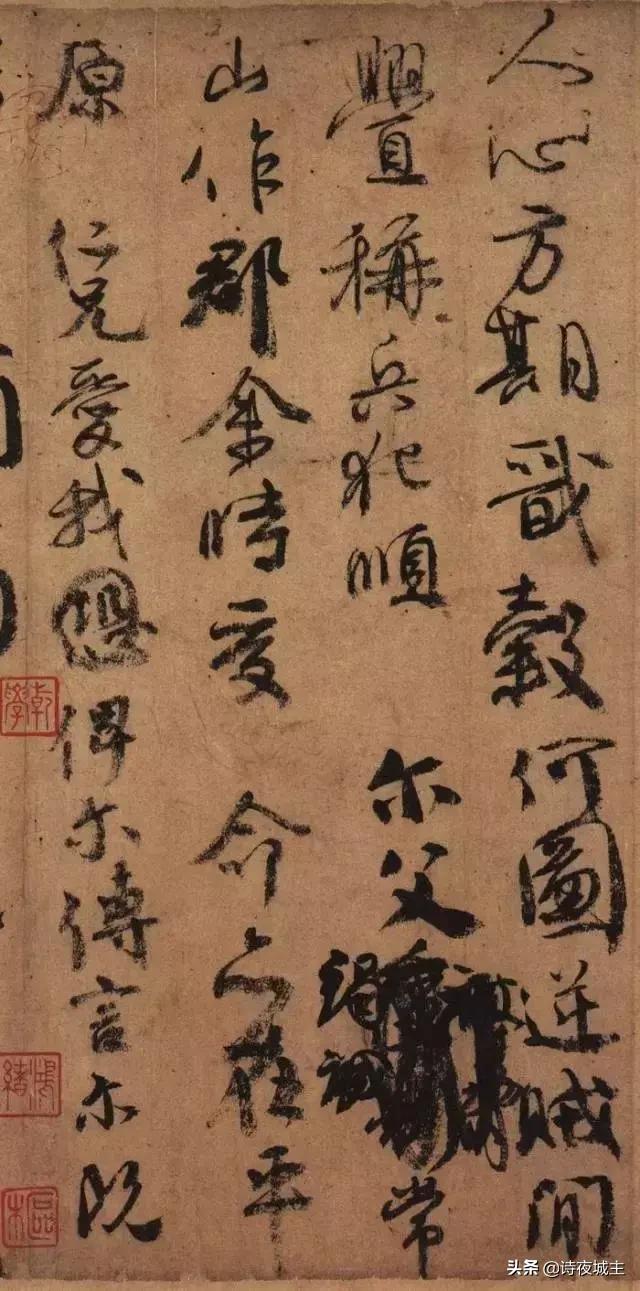 人心方期戩穀何圖逆賊間
釁稱兵犯順 尔父竭誠常
山作郡余時受 命亦在平
原 仁兄愛我俾尔傳言尔既
乾學
鴻緒
头条 @诗夜城主